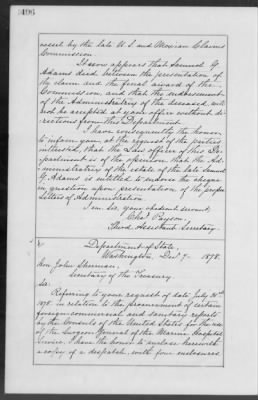 496
issued by the late U. S. and Mexican Claims
Commission.
It now appears that Samuel G.
Adams died between the presentation of
the claim and the final award of the
Commission, and that the endorsement
of the Administratrix of the deceased will
not be accepted at your office without di-
rections from this Department.
I have consequently the honor,
to inform you, at the request of the parties
interested, that the Law officer of this De-
partment is of the opinion that the Ad-
ministratrix of the estate of the late Samuel
G. Adams is entitled to endorse the cheque
in question upon presentation of the proper
Letters of Administration.
I am Sir, your obedient servant,
Chas. Payson,
Third Assistant Secretary.
Department of State,
Washington, Dec. 7 - 1878.
Hon. John Sherman,
Secretary of the Treasury.
Sir:
Referring to your request of date July 30th
1878, in relation to the procurement of certain
foreign commercial and sanitary reports
by the Consuls of the United States for the use
of the Surgeon General of the Marine Hospital
Service, I have the honor to enclose herewith
a copy of a despatch, with four inclosures